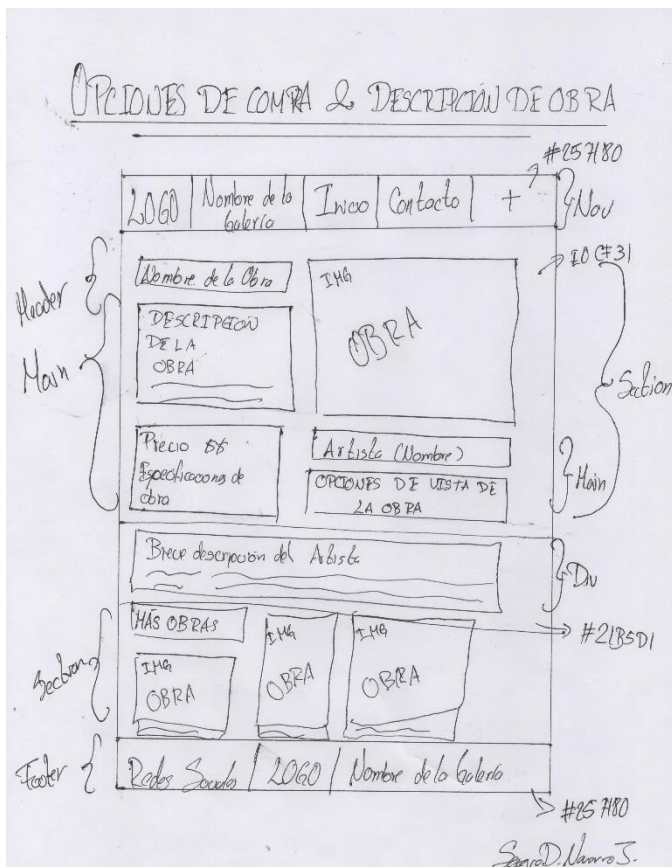 OPCIONES DE COMRA & DESCRIPCIÓN DE OBRA
#257180
LOGO
Nombre de la
Galería
Inicio
Contacto
+
Nav
Header
Nombre de la Obra
IMG
OBRA
Main
DESCRIPCIÓN
DE LA
OBRA
Section
Precio $$
Especificaciones de
obra
Artista (Nombre)
OPCIONES DE VISTA DE
LA OBRA
Main
Breve descripción del Artista
Div
MÁS OBRAS
#21B5D1
Section
IMG
OBRA
IMG
OBRA
IMG
OBRA
Footer
Redes Sociales
LOGO
Nombre de la Galería
#257180